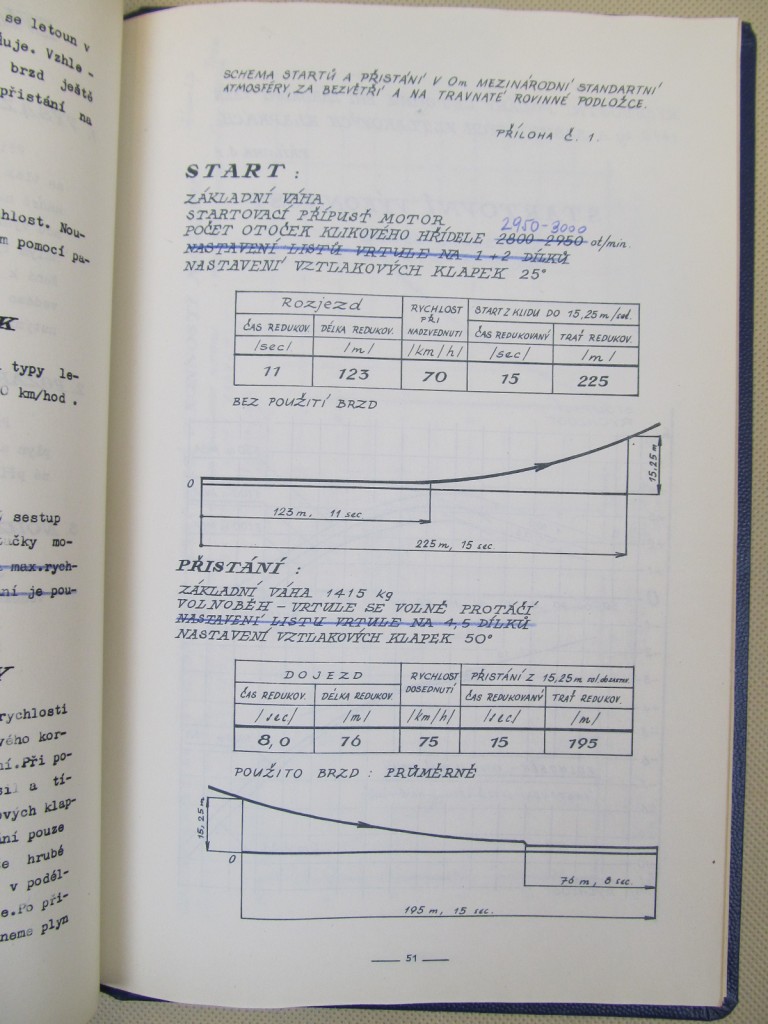 se letoun v
duje. Vzhle -
brzd ještě
přistání na
hlost. Nou-
m pomocí pa-
K
typy le-
0 km/hod .
sestup
mo-
max.rych-
ní je pou-
Y
rychlosti
vého kor-
ní.Při po-
sil a tí-
ových klap-
ání pouze
hrubé
v poděl-
e.Po při-
neme plyn
SCHEMA STARTŮ A PŘISTÁNÍ V 0m MEZINÁRODNÍ STANDARTNÍ
ATMOSFÉRY, ZA BEZVĚTŘÍ A NA TRAVNATÉ ROVINNÉ PODLOŽCE.
PŘÍLOHA Č. 1.
START :
ZÁKLADNÍ VÁHA
STARTOVACÍ PŘÍPUSŤ MOTOR
2950-3000
POČET OTOČEK KLIKOVÉHO HŘÍDELE 2800-2950 ot/min.
NASTAVENÍ LISTŮ VRTULE NA 1÷2 DÍLKŮ
NASTAVENÍ VZTLAKOVÝCH KLAPEK 25°
Rozjezd RYCHLOST PŘI NADZVEDNUTÍ START Z KLIDU DO 15,25 m/sol.
ČAS REDUKOV. DÉLKA REDUKOV. ČAS REDUKOVANÝ TRAŤ REDUKOV.
/sec/ /m/ /km/h/ /sec/ /m/
11 123 70 15 225
BEZ POUŽITÍ BRZD
0
15,25 m
123 m, 11 sec
225 m, 15 sec.
PŘISTÁNÍ :
ZÁKLADNÍ VÁHA 1415 kg
VOLNOBĚH - VRTULE SE VOLNĚ PROTÁČÍ
NASTAVENÍ LISTU VRTULE NA 4,5 DÍLKŮ
NASTAVENÍ VZTLAKOVÝCH KLAPEK 50°
DOJEZD RYCHLOST DOSEDNUTÍ PŘISTÁNÍ Z 15,25 m
ČAS REDUKOV. DÉLKA REDUKOV. ČAS REDUKOVANÝ TRAŤ REDUKOV.
/sec/ /m/ /km/h/ /sec/ /m/
8,0 76 75 15 195
POUŽITO BRZD : PRŮMĚRNĚ
15,25 m
0
76 m, 8 sec.
195 m, 15 sec.
51